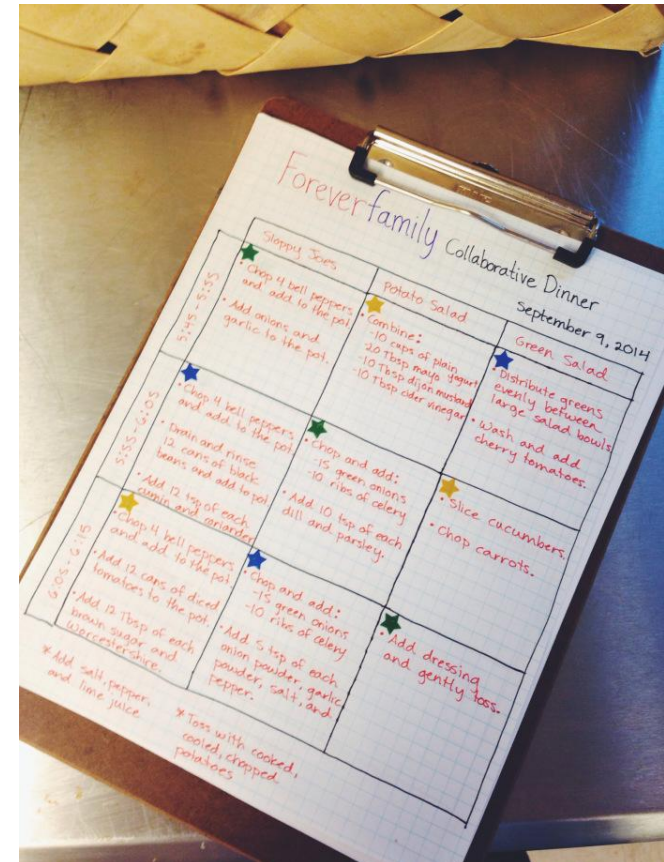 Foreverfamily Collaborative Dinner
September 9, 2014
Sloppy Joes
Potato Salad
Green Salad
5:45 - 5:55
• Chop 4 bell peppers
and add to the pot.
• Add onions and
garlic to the pot.
• Combine:
-10 cups of plain
yogurt
-20 Tbsp mayo
-10 Tbsp dijon mustard
-10 Tbsp cider vinegar
• Distribute greens
evenly between
large salad bowls
• Wash and add
cherry tomatoes.
5:55 - 6:05
• Chop 4 bell peppers
and add to the pot
• Drain and rinse
12 cans of black
beans and add to pot
• Add 12 tsp of each
cumin and coriander
• Chop and add:
-15 green onions
-10 ribs of celery
• Add 10 tsp of each
dill and parsley.
• Slice cucumbers.
• Chop carrots.
6:05 - 6:15
• Chop 4 bell peppers
and add to the pot
• Add 12 cans of diced
tomatoes to the pot.
• Add 12 Tbsp of each
brown sugar and
Worcestershire.
• Chop and add:
-15 green onions
-10 ribs of celery
• Add 5 tsp of each
onion powder, garlic
powder, salt, and
pepper.
• Add dressing
and gently toss.
* Add salt, pepper,
and lime juice
* Toss with cooked,
cooled, chopped
potatoes